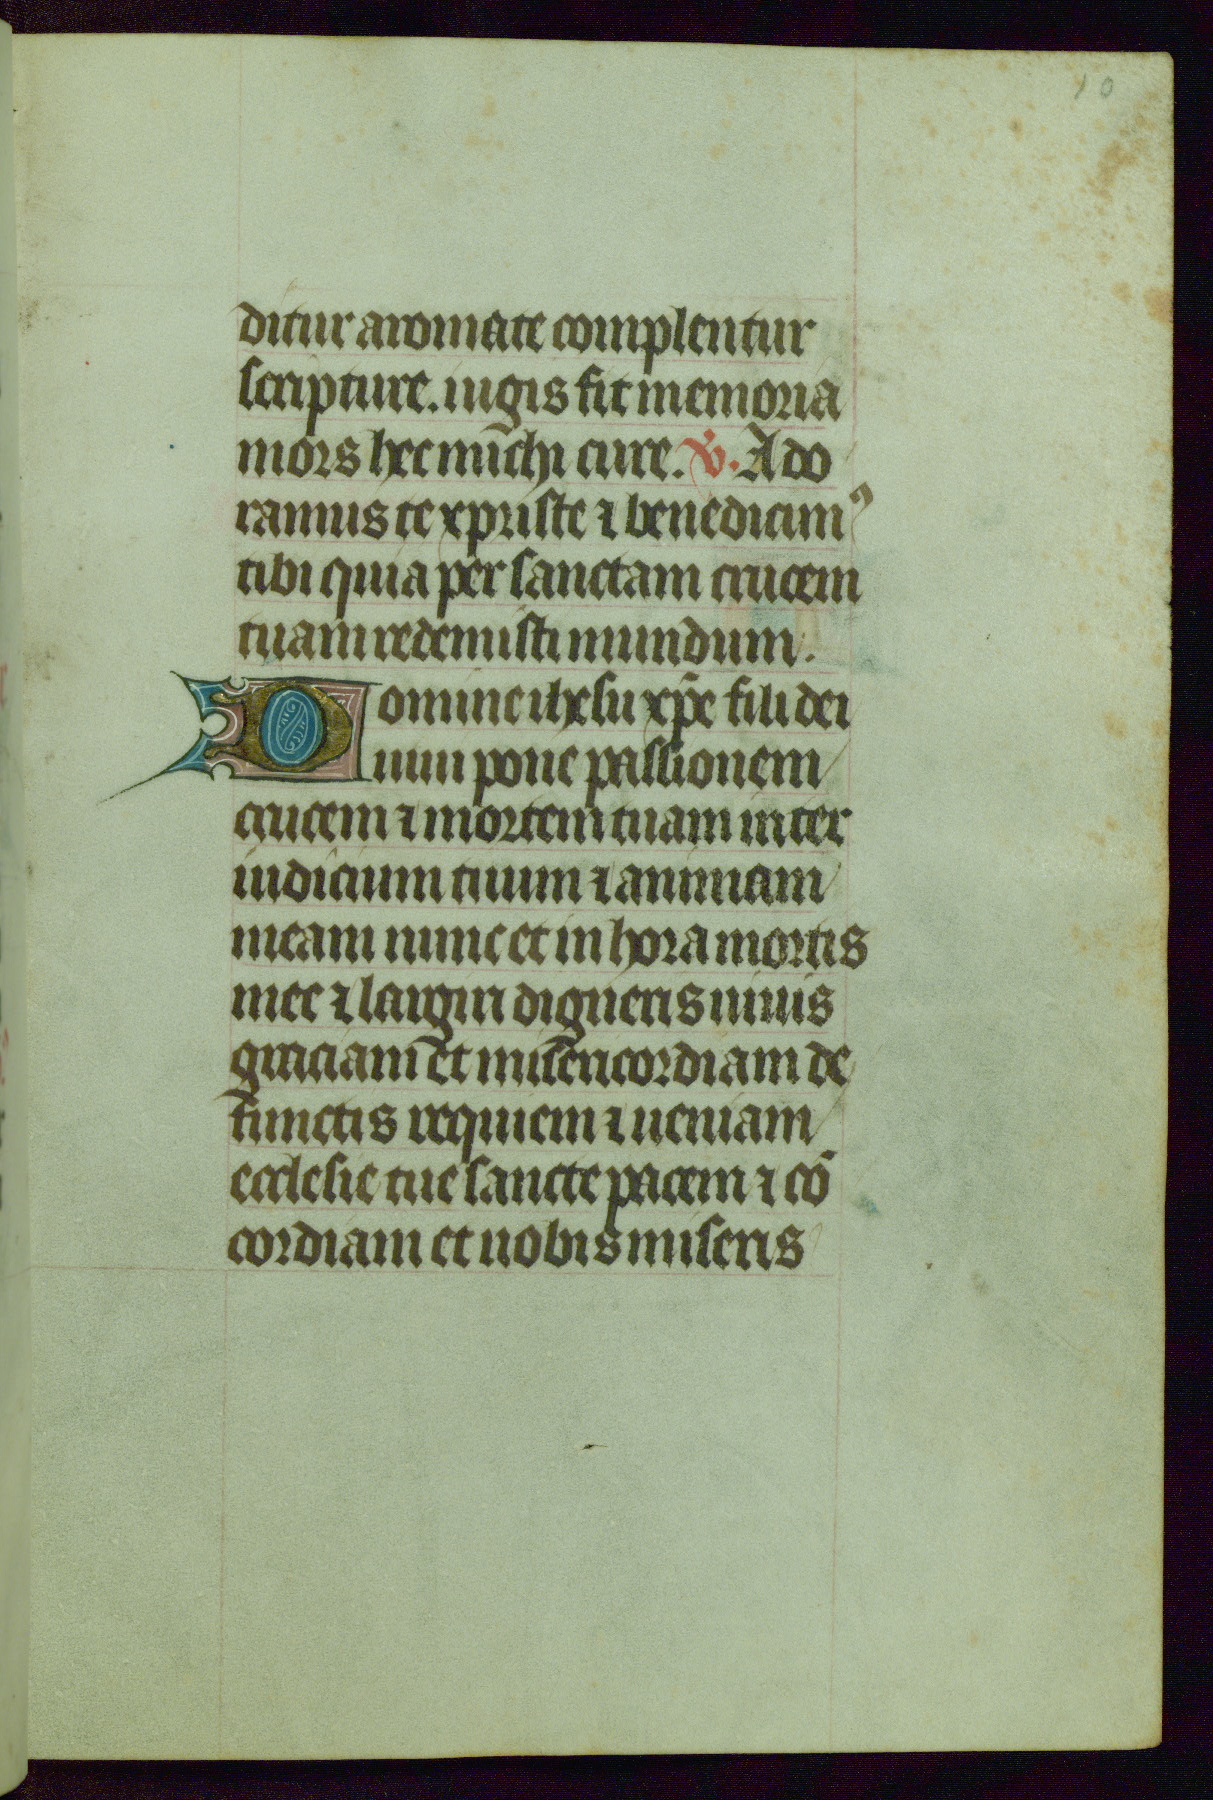 10
ditur aromate complentur
scripture. iugis fit memoria
mors hec mīchi cure. V̇. Ado
ramus te xpriste ⁊ benedicimꝰ
tibi quia per sanctam crucem
tuam redemisti mundum.
Domine ihesu xp̄e fili dei
uiui pone passionem
crucem ⁊ mortem tuam inter
iudicium tuum ⁊ animam
meam nunc et in hora mortis
mee ⁊ largiri digneris uiuis
graciam et misericordiam de
functis requiem ⁊ ueniam
ecclesie tue sancte pacem ⁊ cō
cordiam et nobis miseris